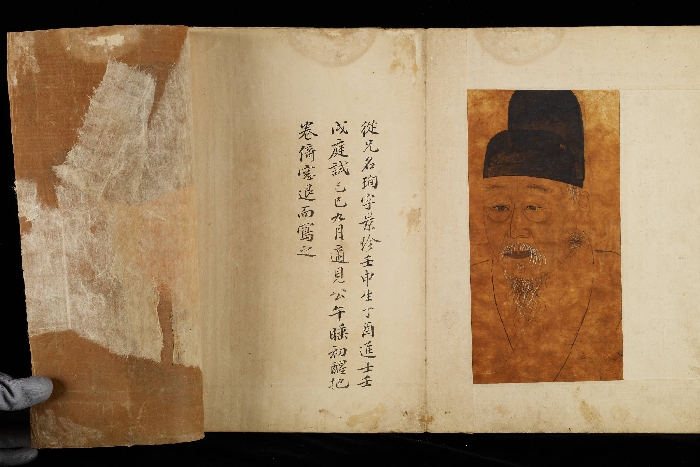 從兄名珣字景於壬申生丁酉進士壬
戌庭試己巳九月適見公午睡初醒把
卷倚窓退而寫之